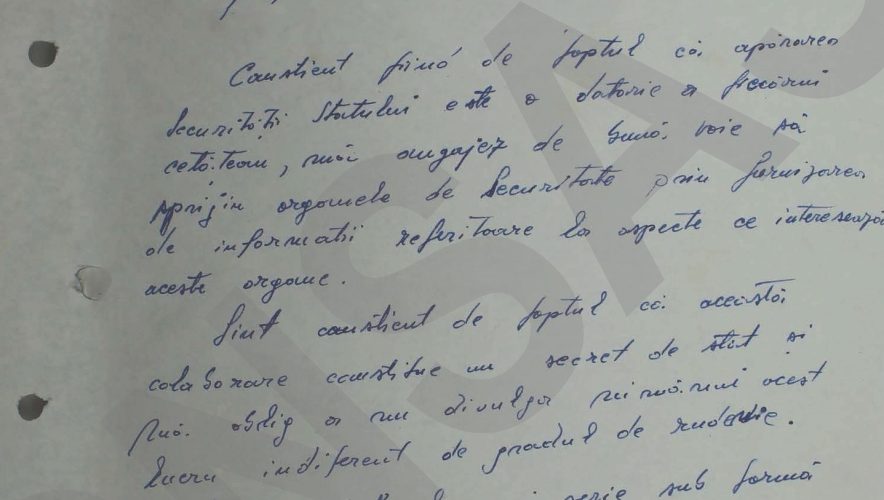 Constient fiind de faptul că apărarea
Securității Statului este o datorie a fiecărui
cetățean, mă angajez de bună voie să
sprijin organele de Securitate prin furnizarea
de informatii referitoare la aspecte ce interesează
aceste organe.
Sint constient de faptul că această
colaborare constitue un secret de stat si
mă oblig a nu divulga nimănui acest
lucru indiferent de gradul de rudenie.
serie sub formă